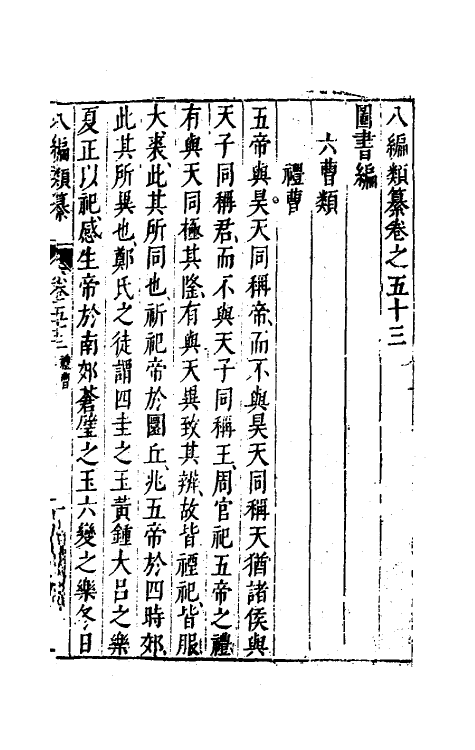 八編類纂卷之五十三
圖書編
六曹類
禮曹
五帝與昊天同稱帝而不與昊天同稱天猶諸侯與
天子同稱君而不與天子同稱王周官祀五帝之禮
有與天同極其隆有與天異致其辨故皆禋祀皆服
大裘此其所同也祈祀帝於圜丘兆五帝於四時郊
此其所異也鄭氏之徒謂四圭之玉黃鍾大呂之樂
夏正以祀感生帝於南郊蒼璧之玉六變之樂冬日
八編類纂 卷五十三 禮曹